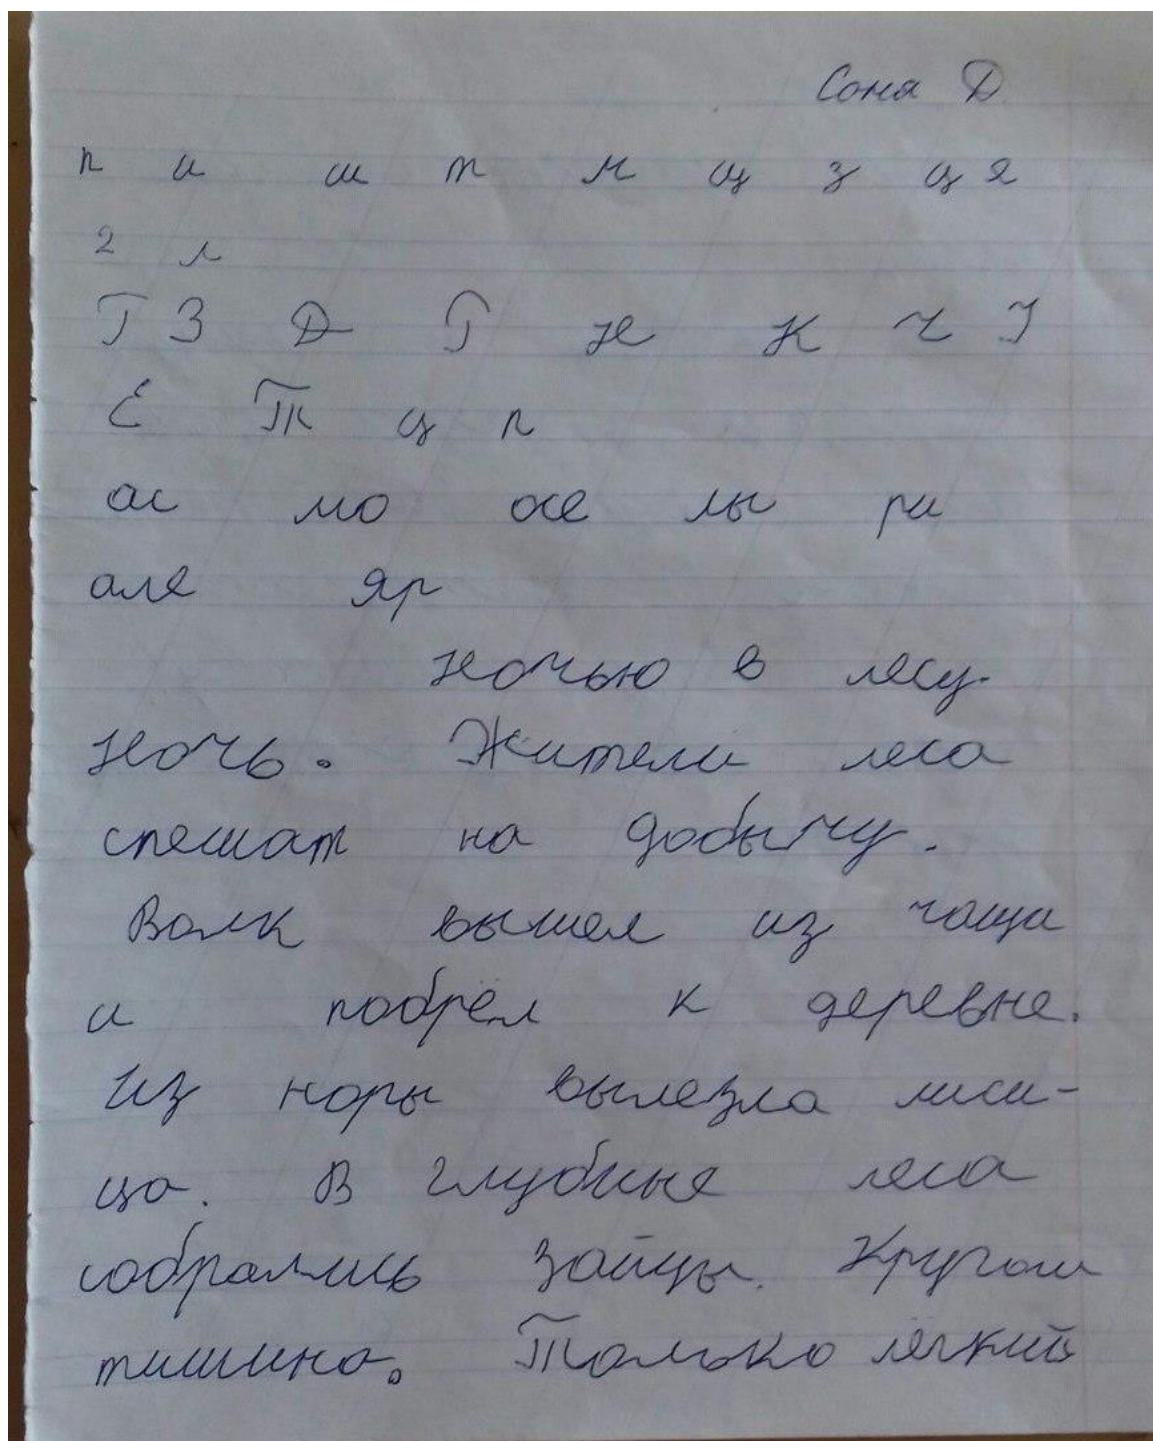 Соня Д
п и ш т м щ з ц я
г л
Т З Д Г Н К Ч
Е Т ц п
ас мо осе лы ри
але яр
Ночью в лесу.
Ночь. Жители леса
спешат на добычу.
Волк вышел из чащи
и побрёл к деревне.
Из норы вылезла лиси-
ца. В глубине леса
собрались зайцы. Кругом
тишина. Только лёгкий